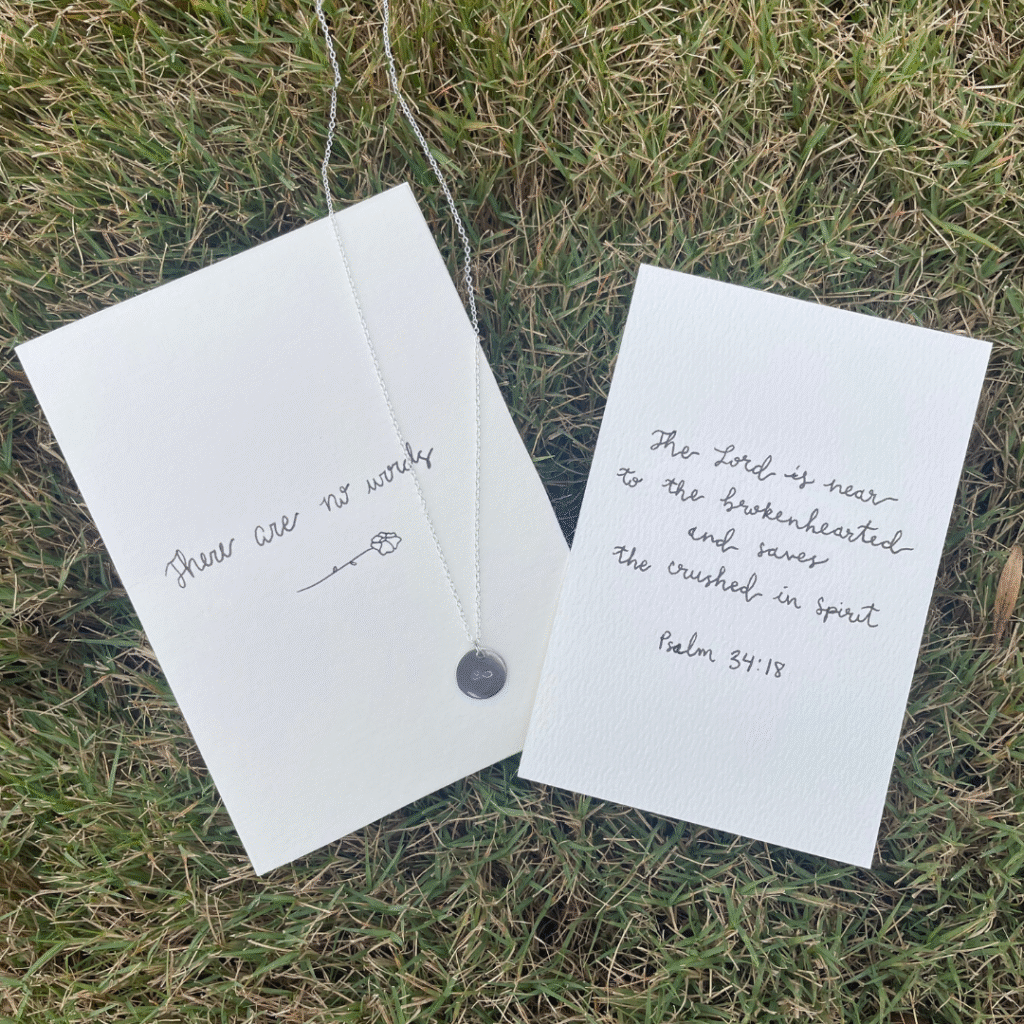 There are no words
The Lord is near
to the brokenhearted
and saves
the crushed in spirit
Psalm 34:18